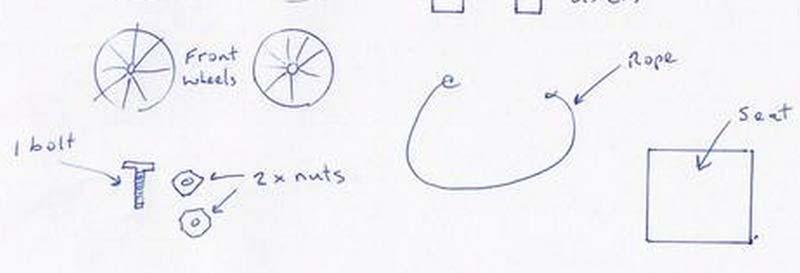 Front
wheels
Rope
Seat
1 bolt
2 x nuts